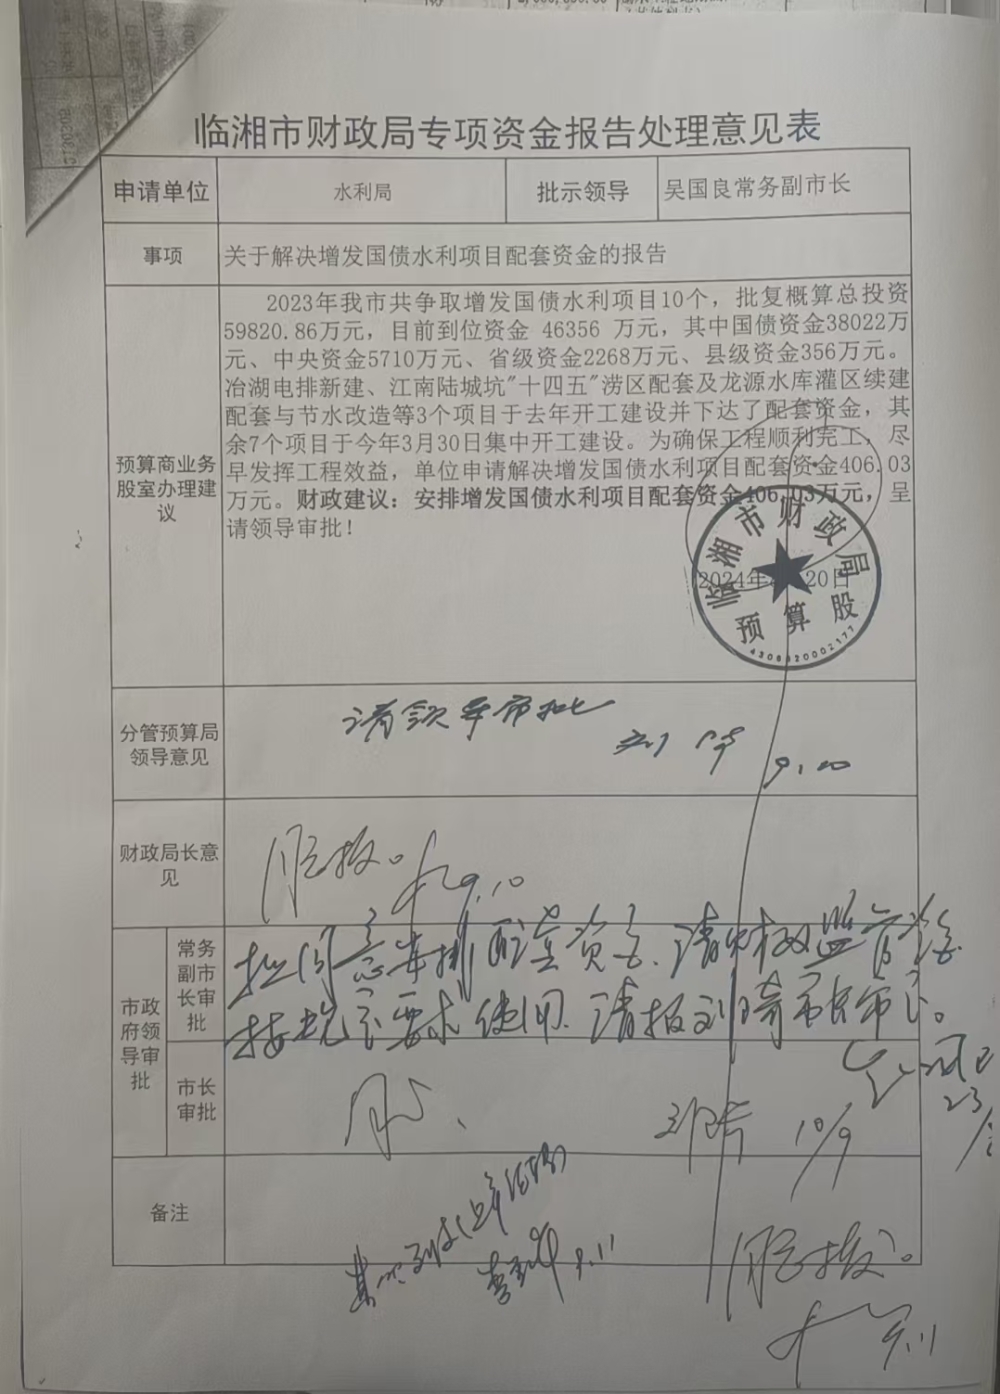 临湘市财政局专项资金报告处理意见表
申请单位 水利局 批示领导 吴国良常务副市长
事项 关于解决增发国债水利项目配套资金的报告
预算商业务股室办理建议
2023年我市共争取增发国债水利项目10个，批复概算总投资
59820.86万元，目前到位资金 46356 万元，其中国债资金38022万
元、中央资金5710万元、省级资金2268万元、县级资金356万元。
冶湖电排新建、江南陆城坑"十四五"涝区配套及龙源水库灌区续建
配套与节水改造等3个项目于去年开工建设并下达了配套资金，其
余7个项目于今年3月30日集中开工建设。为确保工程顺利完工，尽
早发挥工程效益，单位申请解决增发国债水利项目配套资金406.03
万元。财政建议：安排增发国债水利项目配套资金406.03万元，呈
请领导审批！
2024年 20日
临湘市财政局
预算股
4306820002177
分管预算局领导意见
请领导审批
9.10
财政局长意见
同意拨。
9.10
市政府领导审批
常务副市长审批
拟同意安排配套资金、请财政监管资金
按规定要求使用、请报刘琦市长审示。
市长审批
同意、
10/9
备注
9.11
同意拨。
9.11